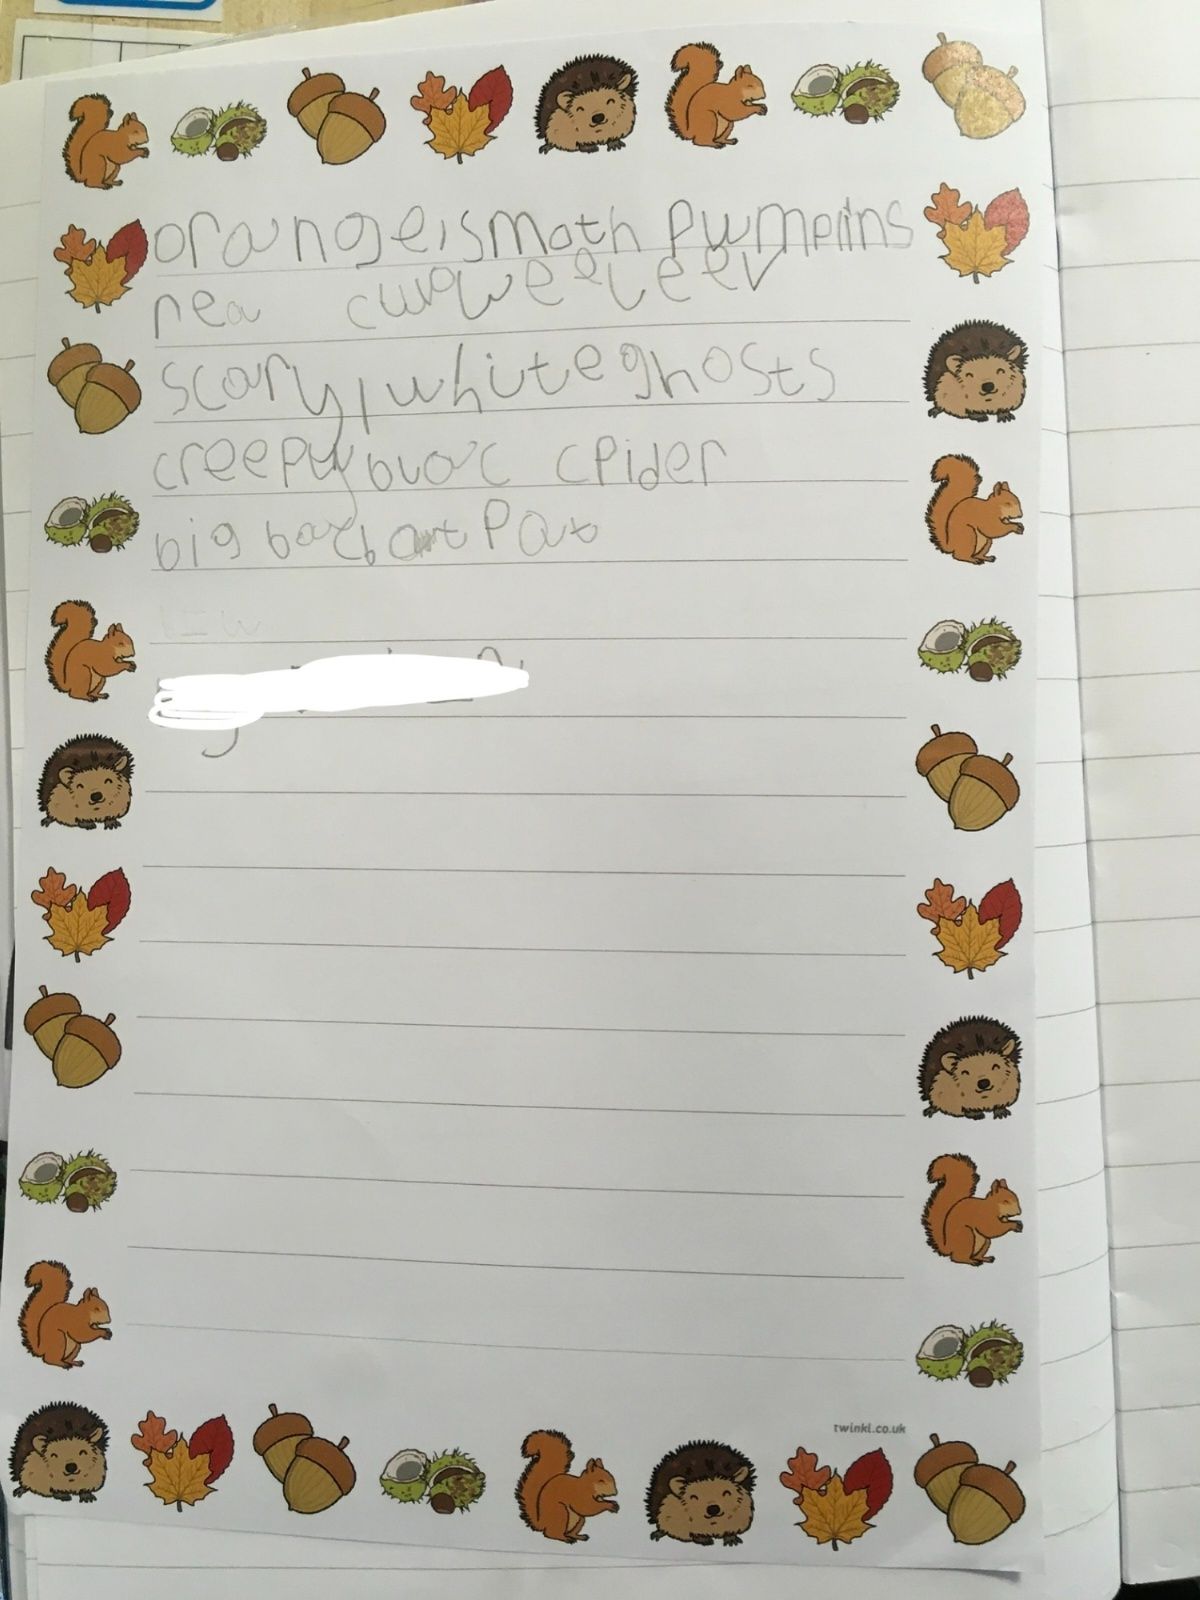 orange, smoth pumpins
rea curqweeleev
scary, white ghosts
creepy buac cpider
big bacbat Pat
twinkl.co.uk